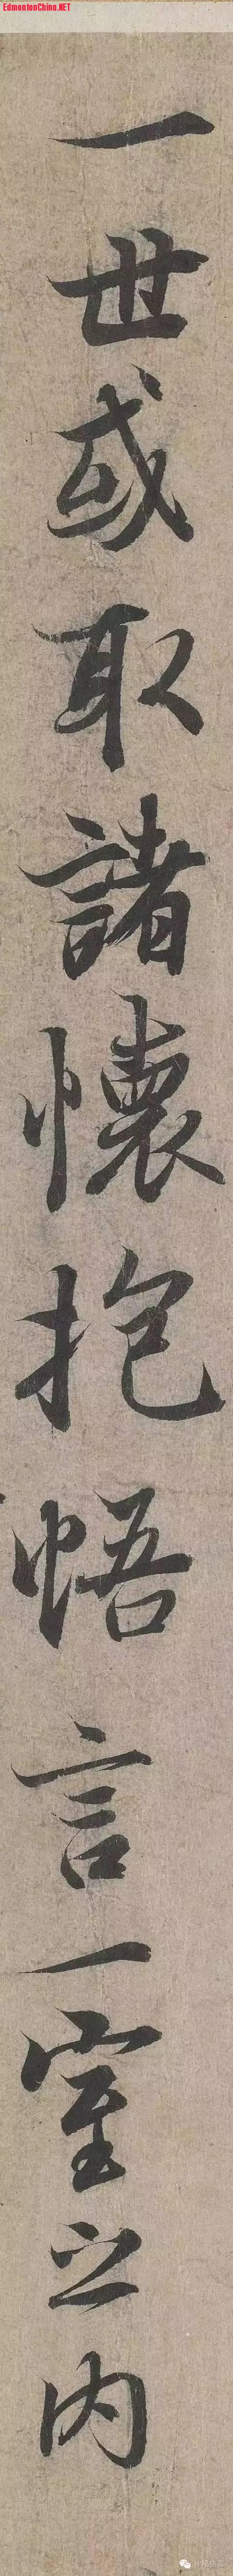 EdmontonChina.NET
一世或取諸懷抱悟言一室之内